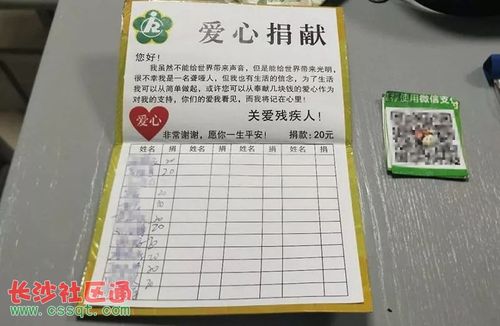 爱心捐献
您好！
我虽然不能给世界带来声音，但是能给世界带来光明，
很不幸我是一名聋哑人，但我也有生活的信念，为了生活
我可以从简单做起，或许您可以从奉献几块钱的爱心作为
对我的支持，你们的爱我看见，而我将记在心里！
爱心
关爱残疾人！
非常谢谢，愿你一生平安！ 捐款：20元
姓名 捐 姓名 捐 姓名 捐 姓名 捐
20
20
20
20
30
20
20
使用微信支
长沙社区通
www.cssqt.com